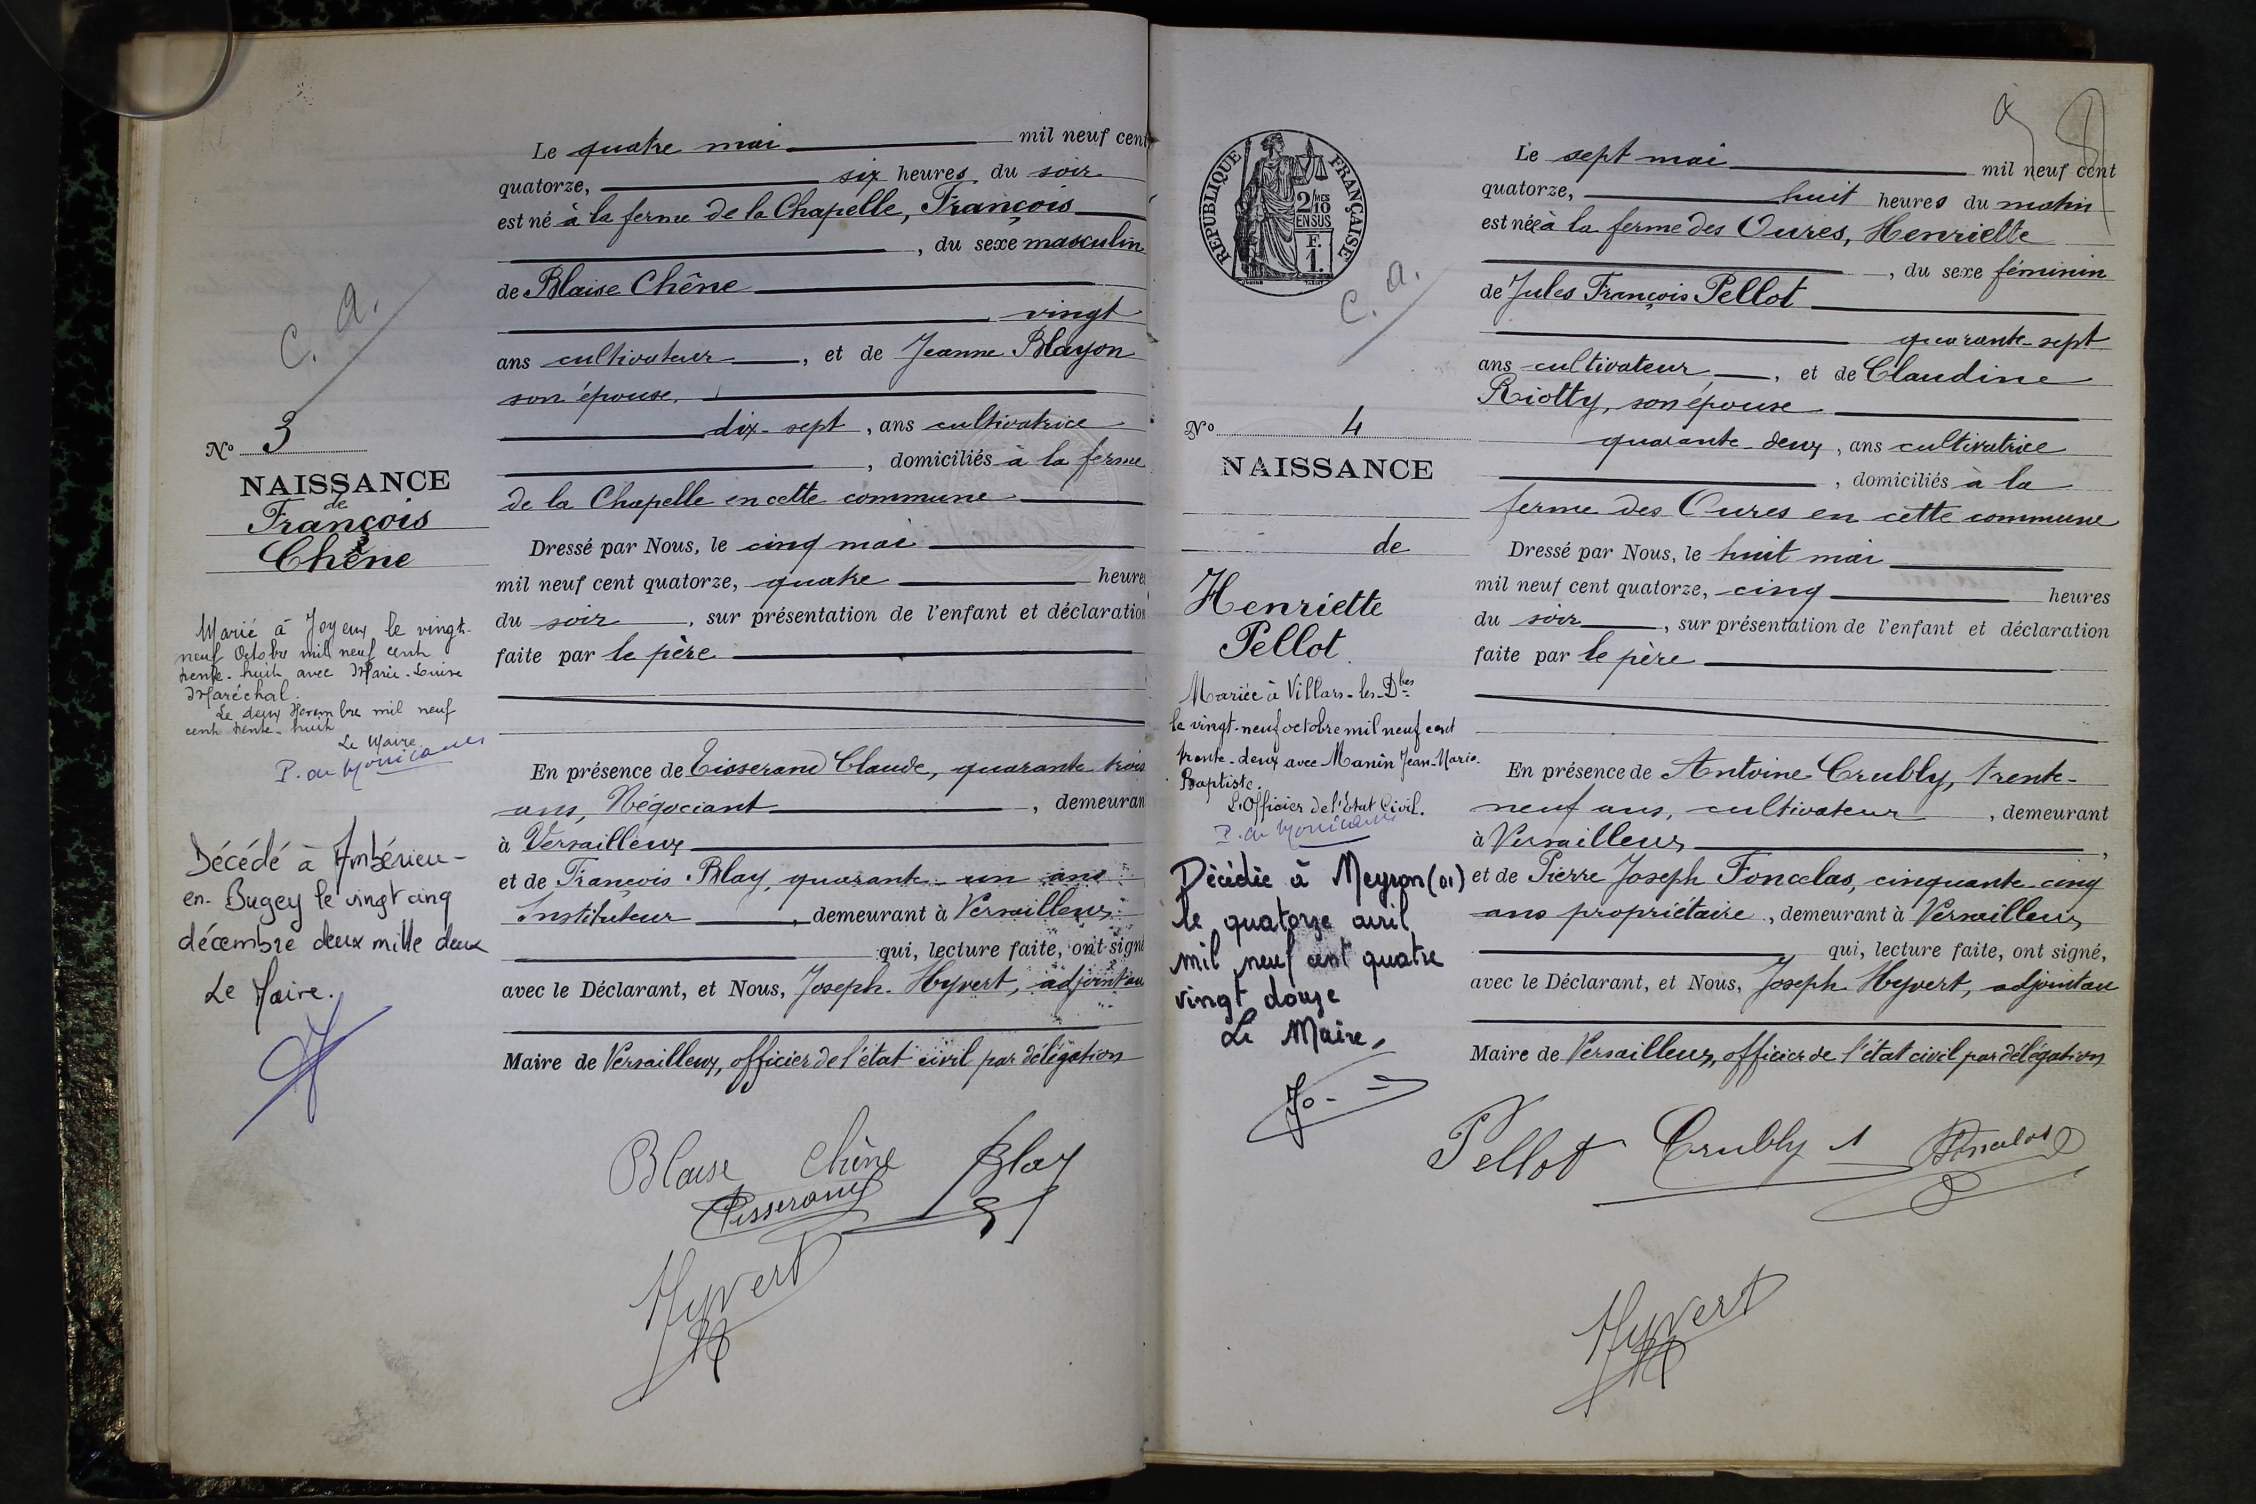 C. A.
N° 3
NAISSANCE
de
François
Chêne
Marié à Joyeux le vingt-
neuf Octobre mil neuf cent
trente-huit avec Marie-Louise
Maréchal.
Le deux Novembre mil neuf
cent trente-huit
Le Maire
Décédé à Ambérieu-
en-Bugey le vingt cinq
décembre deux mille deux
Le Maire.
Le quatre mai mil neuf cent
quatorze, six heures du soir
est né à la ferme de la Chapelle, François
, du sexe masculin
de Blaise Chêne
vingt
ans cultivateur, et de Jeanne Blayon
son épouse,
dix-sept, ans cultivatrice
, domiciliés à la ferme
de la Chapelle en cette commune
Dressé par Nous, le cinq mai
mil neuf cent quatorze, quatre heures
du soir, sur présentation de l'enfant et déclaration
faite par le père
En présence de Tisserand Claude, quarante trois
ans, Négociant, demeuran
à Versailleux
et de François Blay, quarante-un ans
Instituteur, demeurant à Versailleux
qui, lecture faite, ont signé
avec le Déclarant, et Nous, Joseph Hyvert, adjoint au
Maire de Versailleux, officier de l'état civil par délégation
Blaise Chêne Blay
Tisserand
Hyvert
RÉPUBLIQUE FRANÇAISE
2/10 MES
EN SUS
F.
1.
C. A.
N° 4
NAISSANCE
de
Henriette
Pellot
Mariée à Villars-les-Dbes
le vingt-neuf octobre mil neuf cent
trente-deux avec Manin Jean-Marie-
Baptiste.
L'Officier de l'Etat Civil.
Décédée à Meyron (01)
le quatorze avril
mil neuf cent quatre
vingt douze
Le Maire,
Le sept mai mil neuf cent
quatorze, huit heures du matin
est née à la ferme des Oures, Henriette
, du sexe féminin
de Jules François Pellot
quarante-sept
ans cultivateur, et de Claudine
Riotty, son épouse
quarante-deux, ans cultivatrice
, domiciliés à la
ferme des Oures en cette commune
Dressé par Nous, le huit mai
mil neuf cent quatorze, cinq heures
du soir, sur présentation de l'enfant et déclaration
faite par le père
En présence de Antoine Crubly, trente-
neuf ans, cultivateur, demeurant
à Versailleux,
et de Pierre Joseph Foncelas, cinquante-cinq
ans propriétaire, demeurant à Versailleux
qui, lecture faite, ont signé,
avec le Déclarant, et Nous, Joseph Hyvert, adjoint au
Maire de Versailleux, officier de l'état civil par délégation
Pellot Crubly
Hyvert